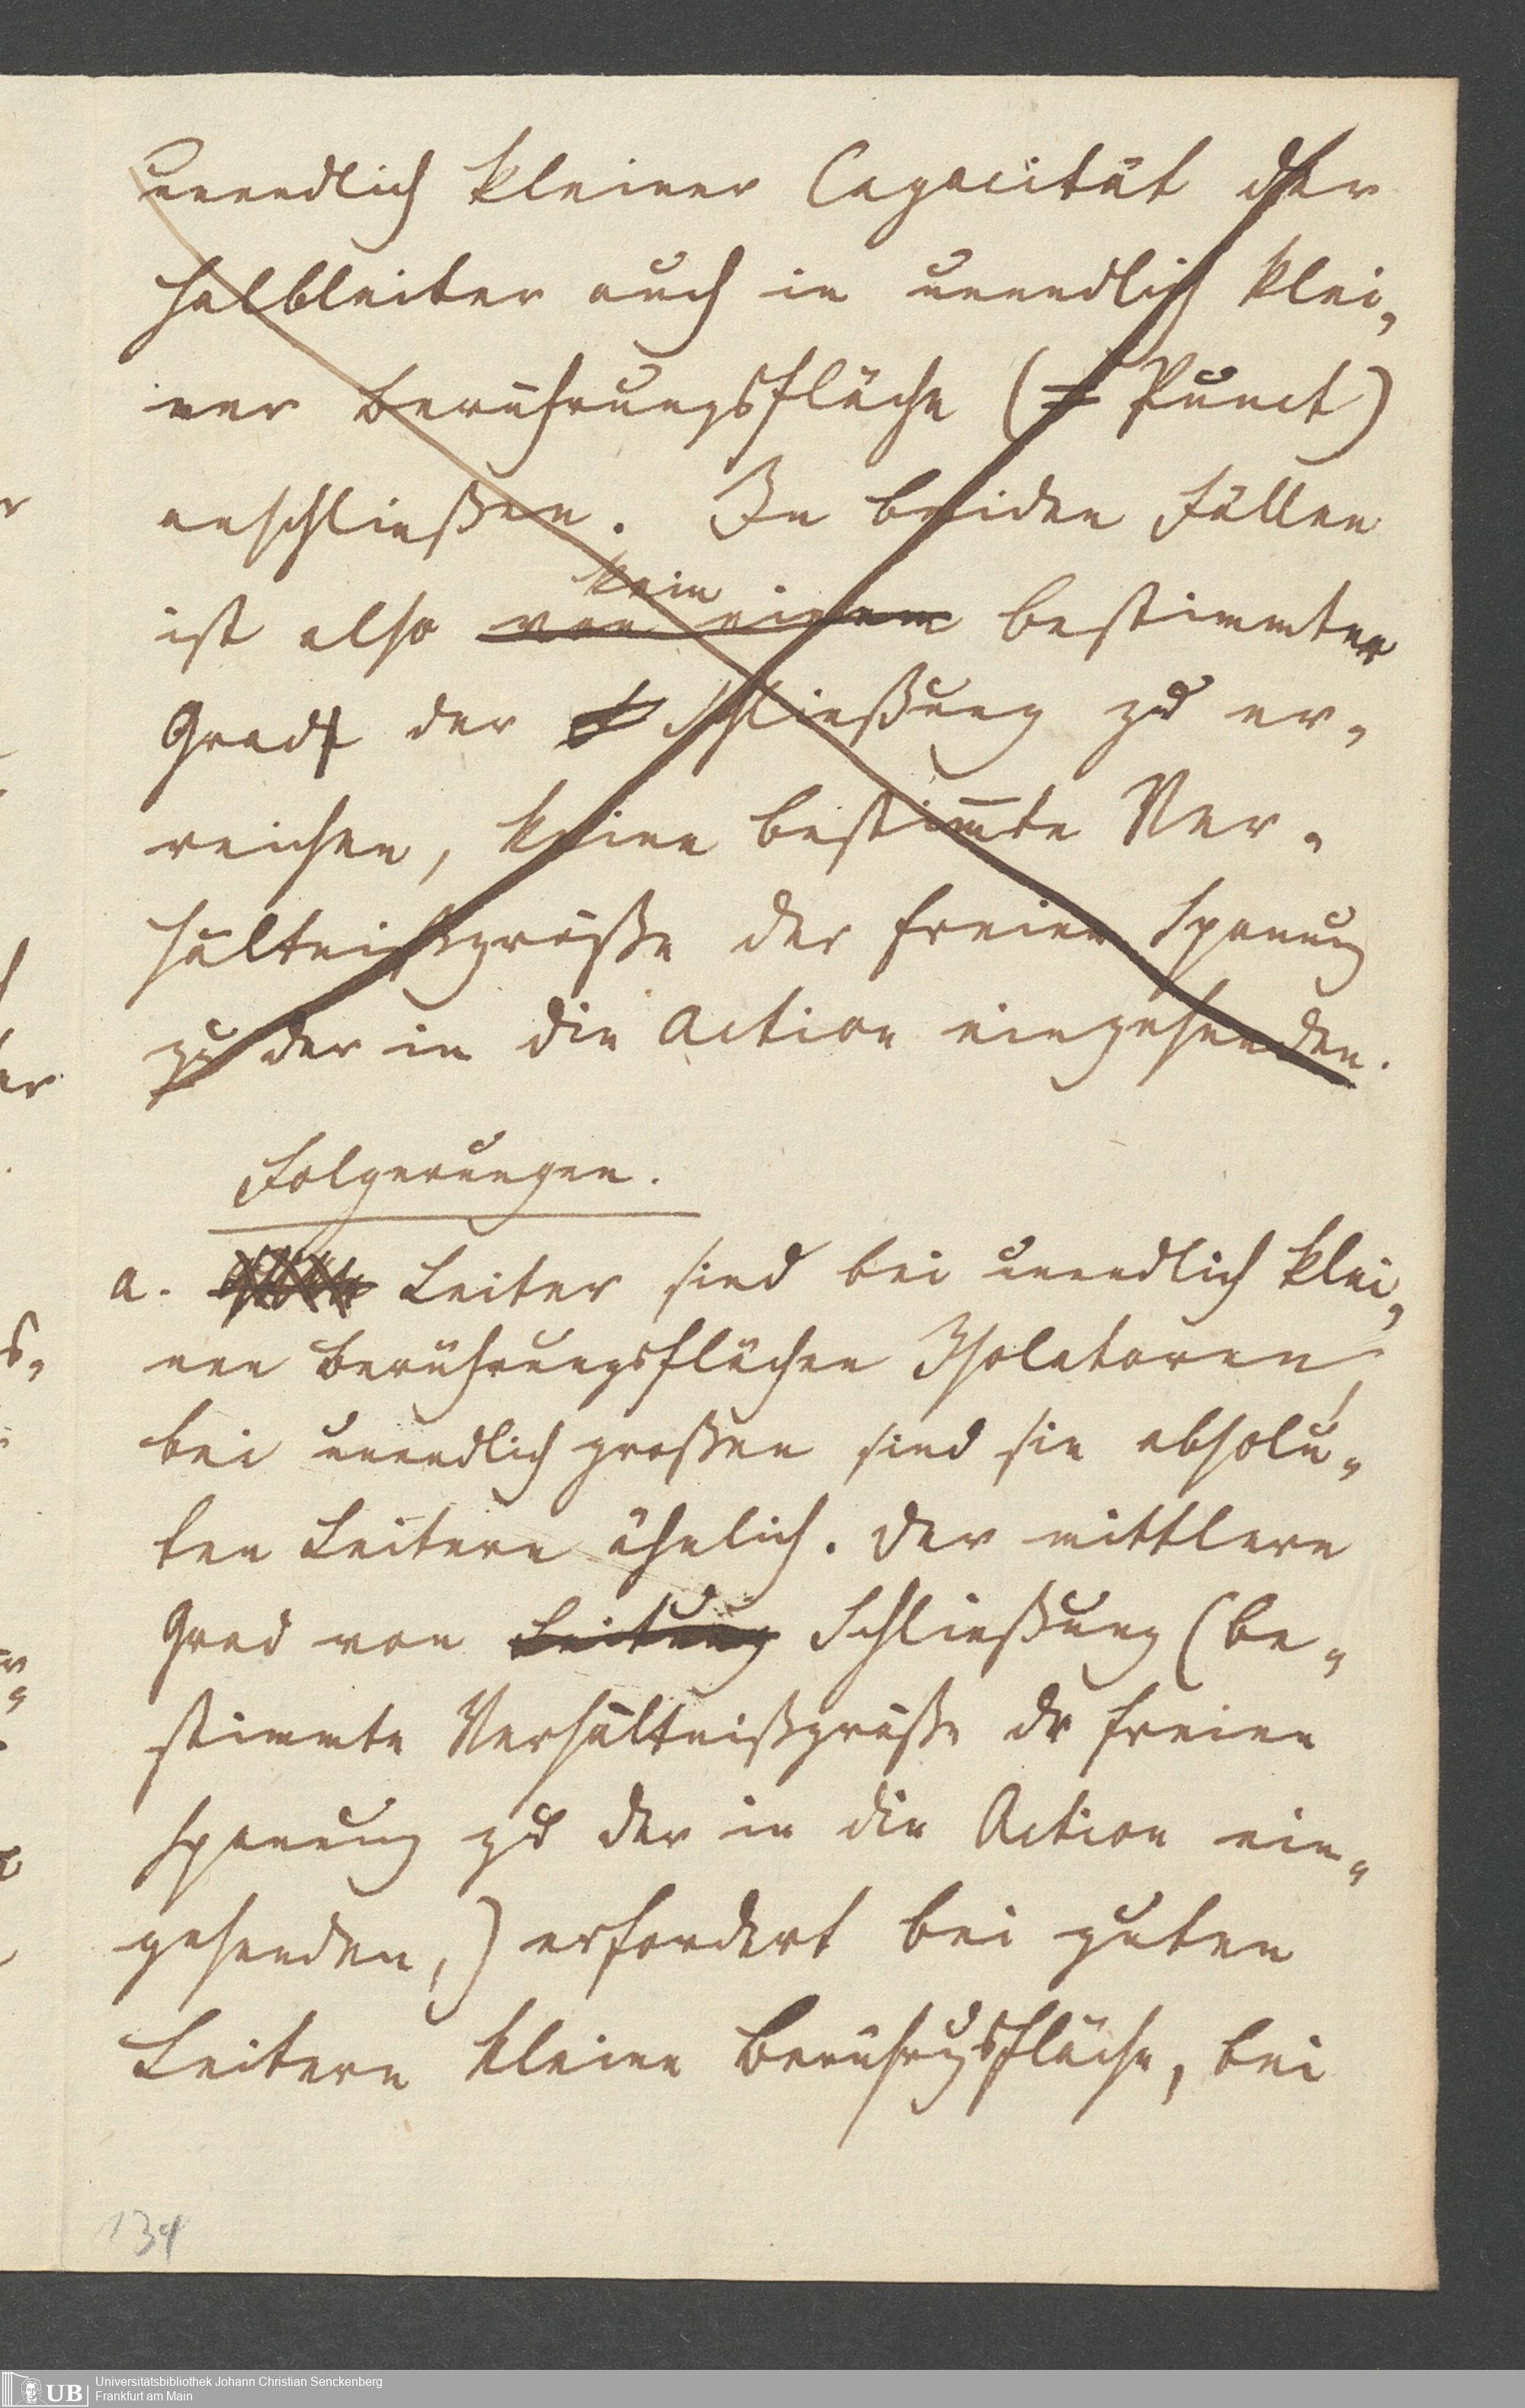 unendlich kleiner Capacität der
Halbleiter auch in unendlich klei„
ner Berührungsfläche (= Punct)
anschließen. In beiden Fällen
kein
ist also von einem bestimmter
Grad der Schließung zu er„
reichen, keine bestim̅te Ver„
hältnißgröße der freien Spannung
zu der in die Action eingehenden.
Folgerungen.
a. Leiter sind bei unendlich klei„
nen Berührungsflächen Isolatoren,
bei unendlich großen sind sie absolu„
ten Leitern ähnlich. Der mittlere
Grad von Leitung Schließung (be„
stimmte Verhältnißgröße dr freien
Spannung zu der in die Action ein„
gehenden,) erfordert bei guten
Leitern kleine Berührgsfläche, bei
134
UB Universitätsbibliothek Johann Christian Senckenberg
Frankfurt am Main